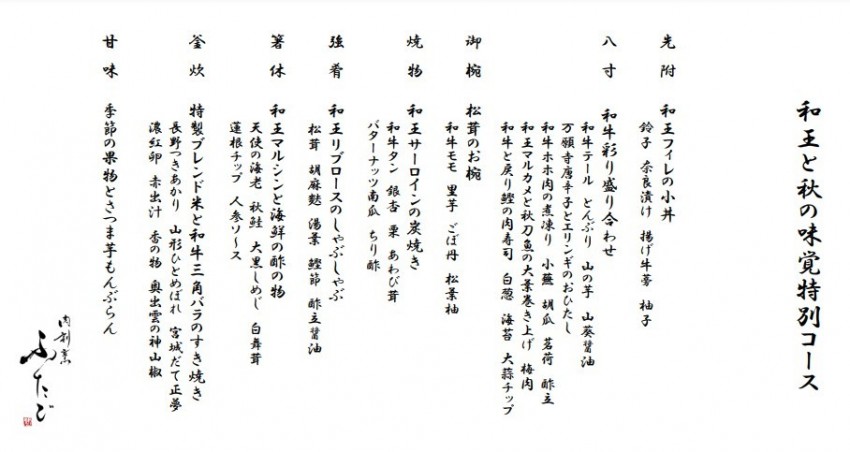 和王と秋の味覚特別コース
先附 和王フィレの小丼
鈴子 奈良漬け 揚げ牛蒡 柚子
八寸 和牛彩り盛り合わせ
和牛テール とんぶり 山の芋 山葵醤油
万願寺唐辛子とエリンギのおひたし
和牛ホホ肉の煮凍り 小蕪 胡瓜 茗荷 酢立
和王マルカメと秋刀魚の大葉巻き上げ 梅肉
和牛と戻り鰹の肉寿司 白葱 海苔 大蒜チップ
御椀 松茸のお椀
和牛モモ 里芋 ごぼ丹 松葉柚
焼物 和王サーロインの炭焼き
和牛タン 銀杏 栗 あわび茸
バターナッツ南瓜 ちり酢
強肴 和王リブロースのしゃぶしゃぶ
松茸 胡麻麩 湯葉 鰹節 酢立醤油
箸休 和王マルシンと海鮮の酢の物
天使の海老 秋鮭 大黒しめじ 白舞茸
蓮根チップ 人参ソース
釜炊 特製ブレンド米と和牛三角バラのすき焼き
長野つきあかり 山形ひとめぼれ 宮城だて正夢
濃紅卵 赤出汁 香の物 奥出雲の神山椒
甘味 季節の果物とさつま芋もんぶらん
肉割烹
ふたご